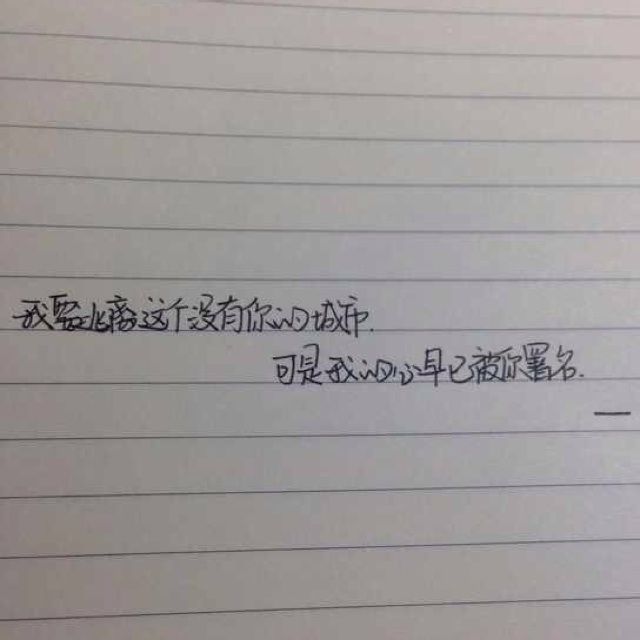 我要飞离这个没有你的城市.
可是我的心早已被你署名.